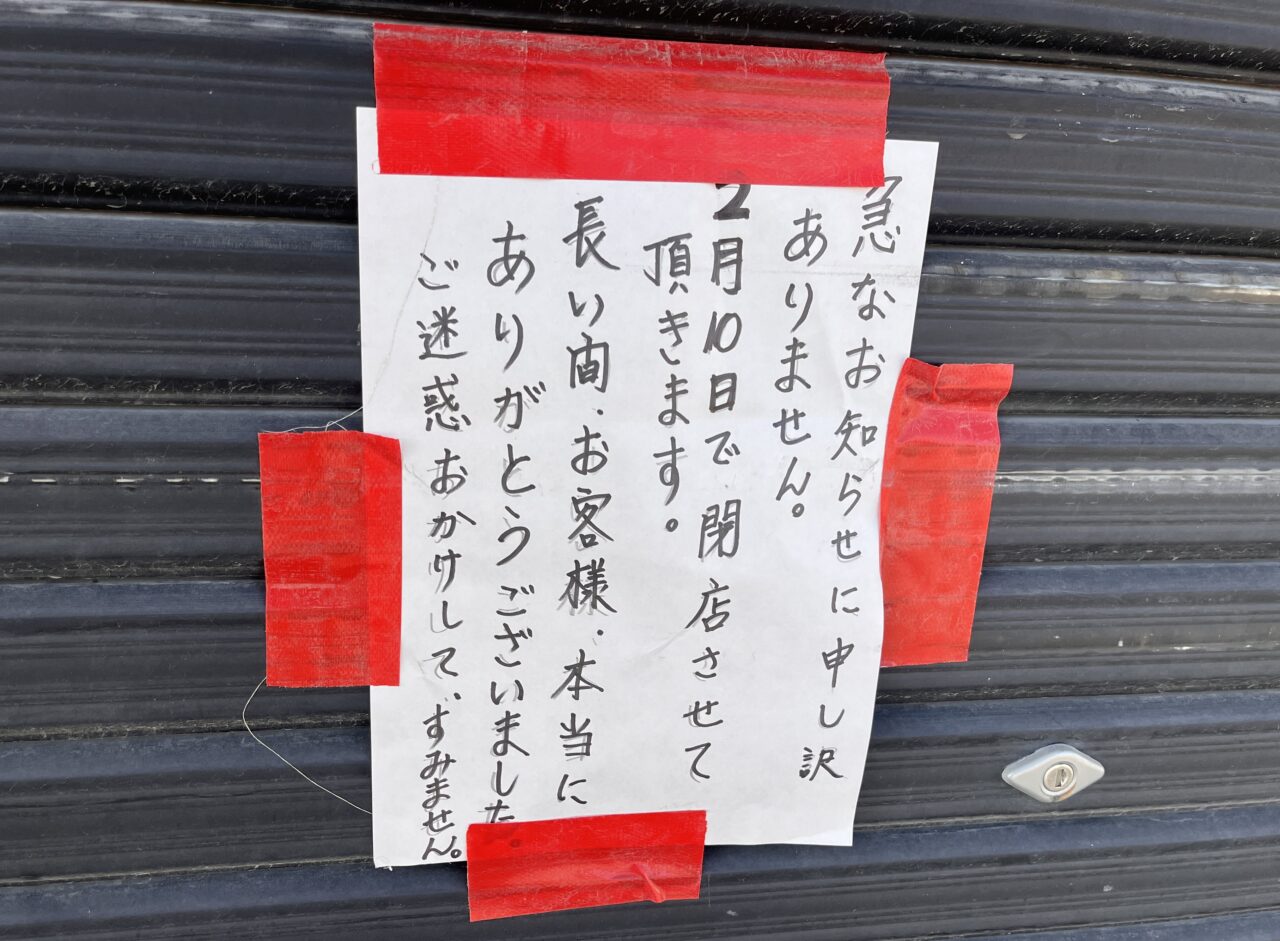 急なお知らせに申し訳
ありません。
2月10日で閉店させて
頂きます。
長い間、お客様、本当に
ありがとうございました。
ご迷惑おかけして、すみません。